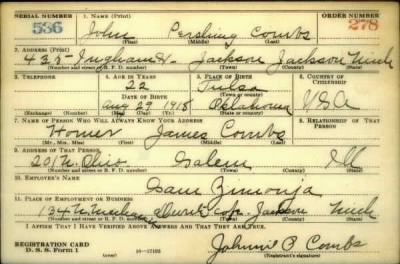 SERIAL NUMBER 1. NAME (Print) ORDER NUMBER
536 John Pershing Combs 278
(First) (Middle) (Last)
2. ADDRESS (Print)
435 - Ingham St - Jackson Jackson Mich
(Number and street or R. F. D. number) (Town) (County) (State)
3. TELEPHONE 4. AGE IN YEARS 5. PLACE OF BIRTH 6. COUNTRY OF CITIZENSHIP
22 Tulsa
(Town or county)
DATE OF BIRTH
Aug 29 1918 Oklahoma USA
(Exchange) (Number) (Mo.) (Day) (Yr.) (State or country)
7. NAME OF PERSON WHO WILL ALWAYS KNOW YOUR ADDRESS 8. RELATIONSHIP OF THAT PERSON
Homer James Combs
(Mr., Mrs., Miss) (First) (Middle) (Last)
9. ADDRESS OF THAT PERSON
201 N. Ohio Salem Ill
(Number and street or R. F. D. number) (Town) (County) (State)
10. EMPLOYER'S NAME
Sam Zimonja
11. PLACE OF EMPLOYMENT OR BUSINESS
134 N. Jackson Mich
(Number and street or R. F. D. number) (Town) (County) (State)
I AFFIRM THAT I HAVE VERIFIED ABOVE ANSWERS AND THAT THEY ARE TRUE.
REGISTRATION CARD
D. S. S. Form 1 (over) 16—17105 Johnnie P Combs